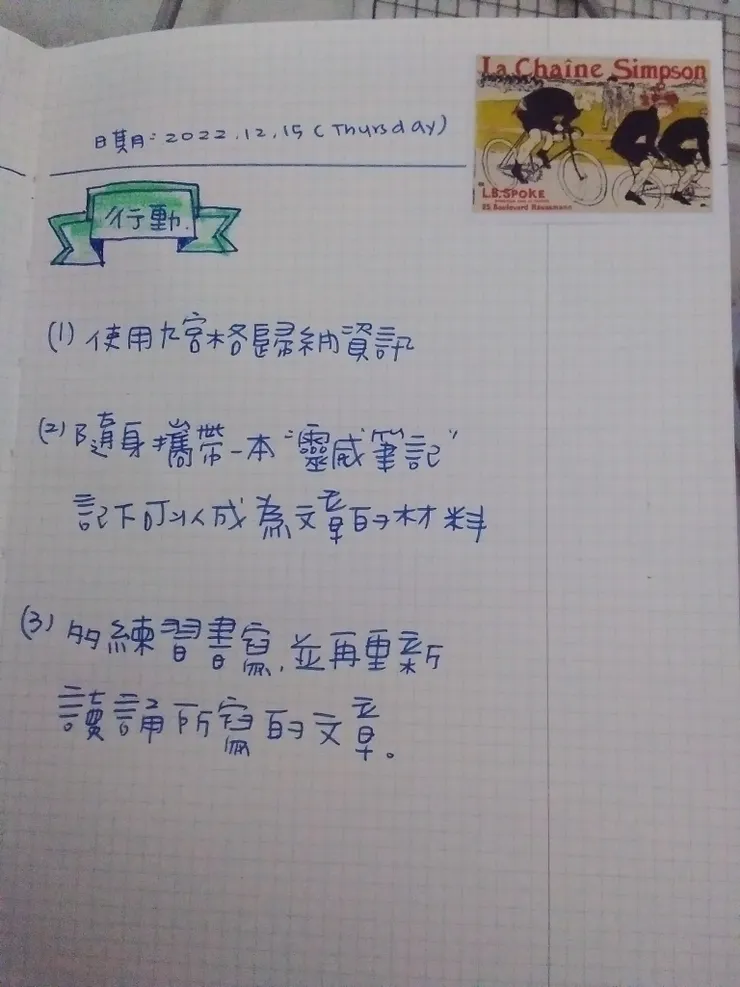 日期:2022.12.15(Thursday)
La Chaîne Simpson
L.B.SPOKE
25 Boulevard Haussmann
行動.
(1)使用九宮格歸納資訊
(2)隨身攜帶一本"靈感筆記"
記下可以成為文章的材料
(3)多練習書寫,並再重新
讀誦所寫的文章。